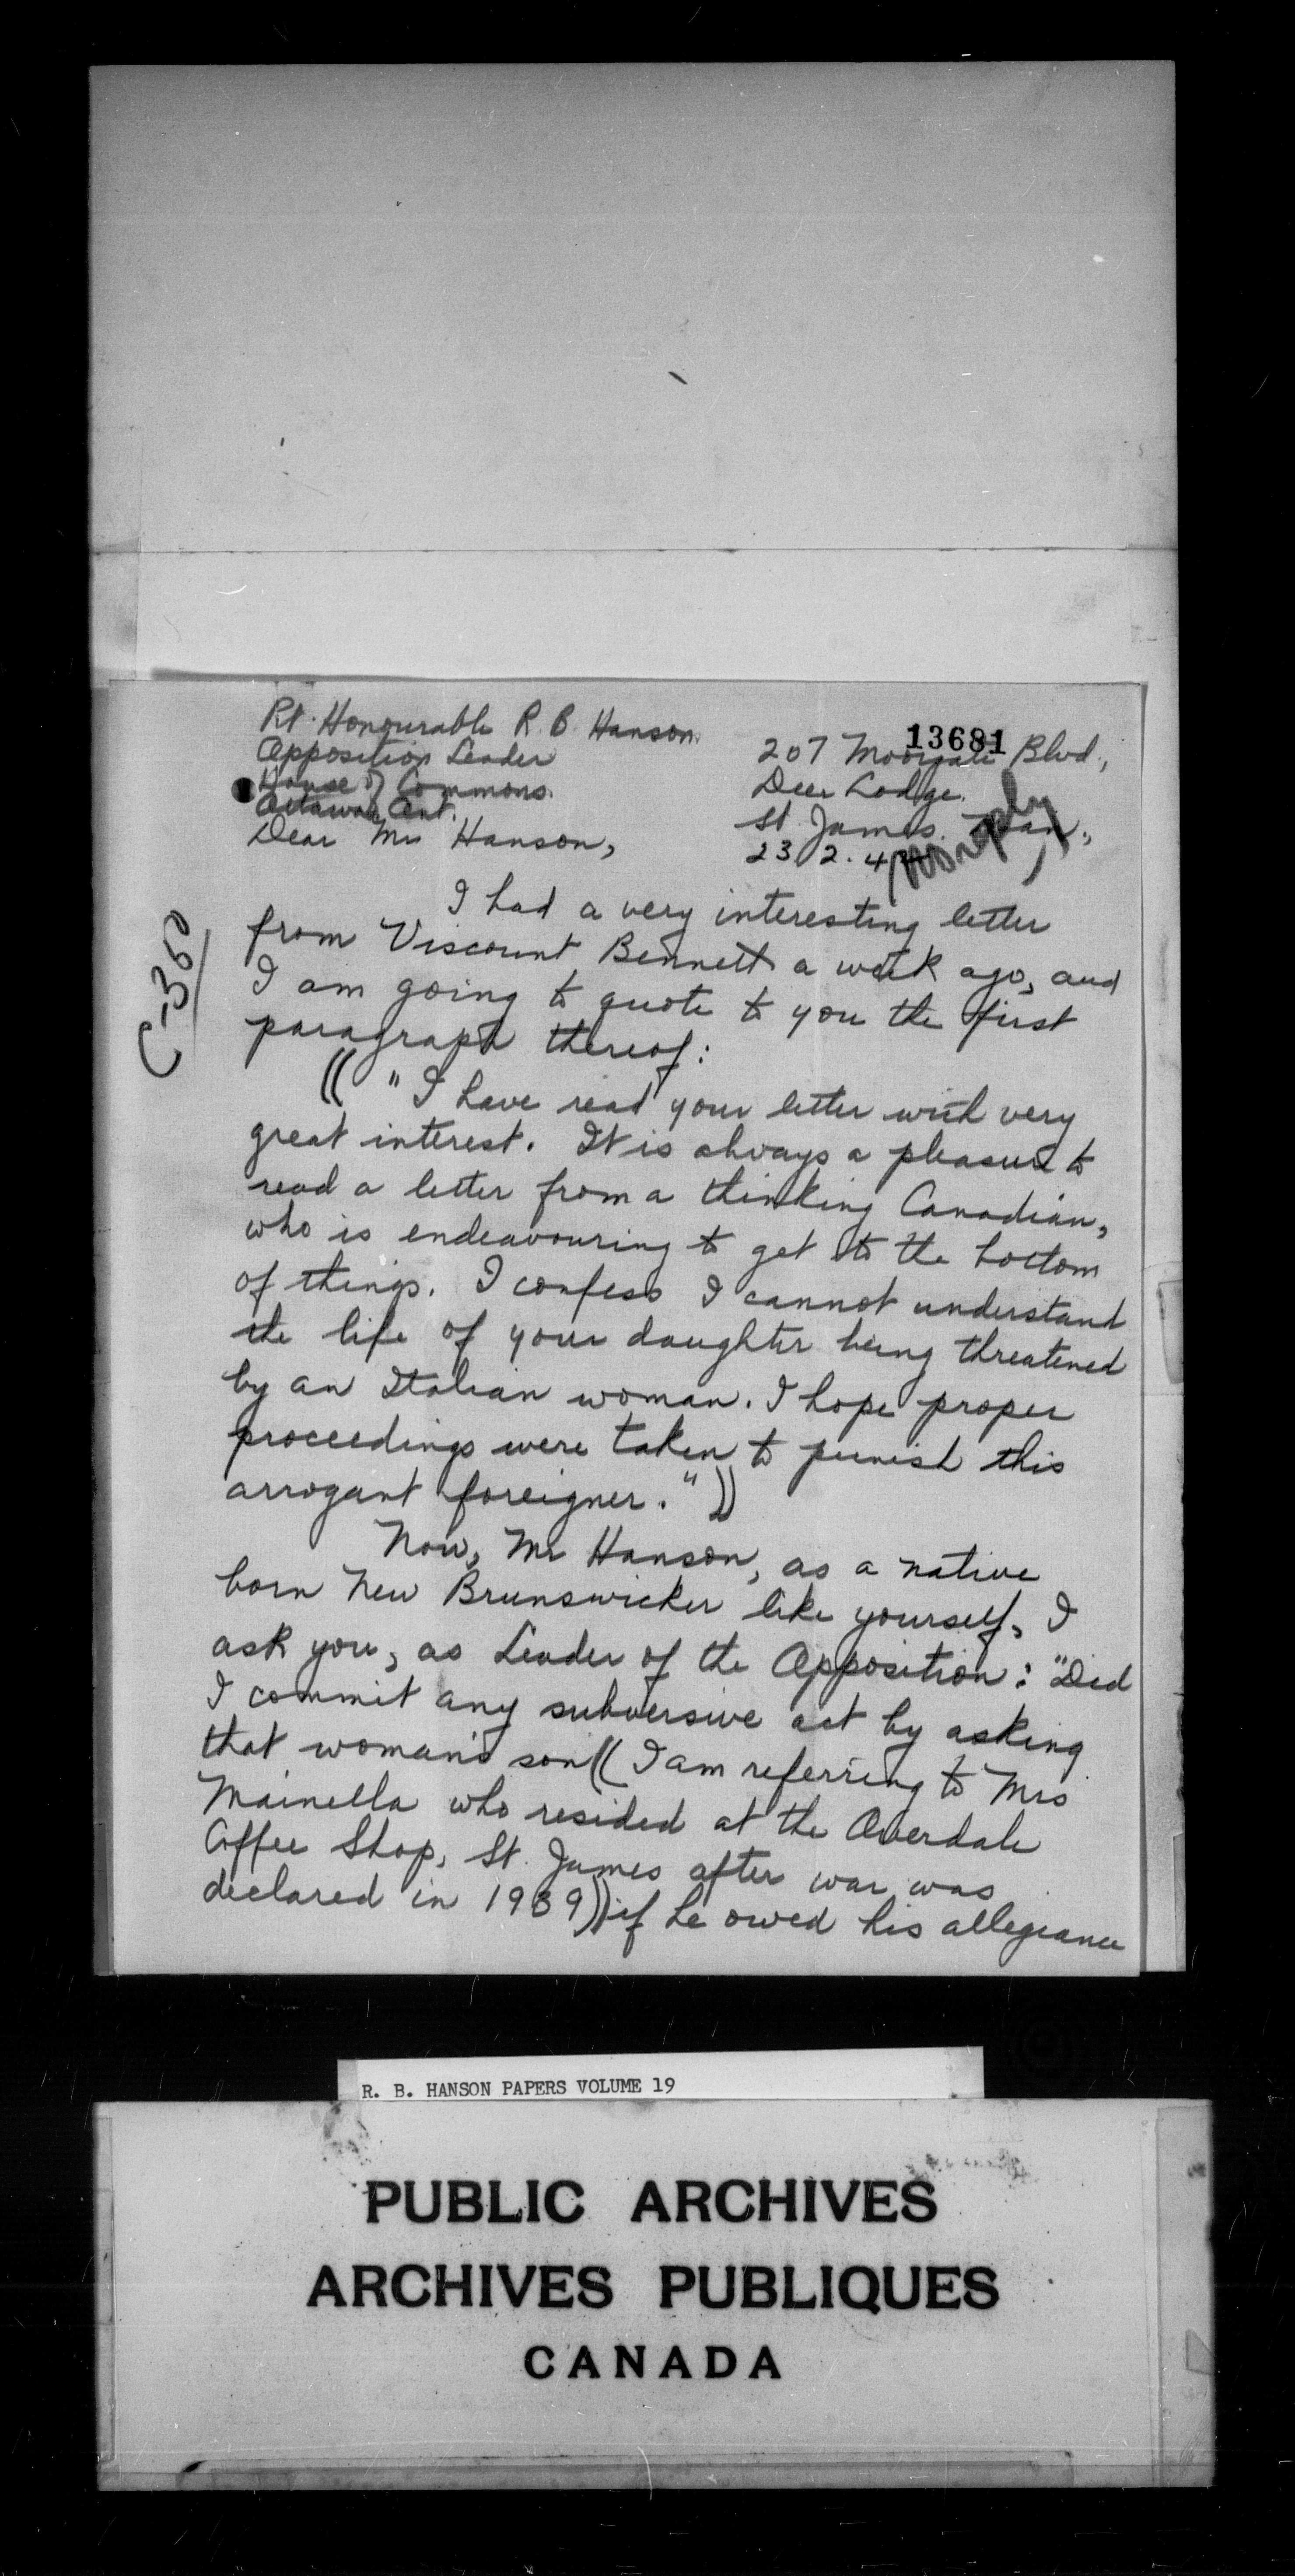 Rt. Honourable R. B. Hanson
Opposition Leader
House of Commons.
Ottawa Ont.
13681
207 Moorgate Blvd.,
Deer Lodge.
St. James. Man.,
23/2.42
No reply
Dear Mr Hanson,
C-360
I had a very interesting letter
from Viscount Bennett a week ago, and
I am going to quote to you the first
paragraph thereof:
(( "I have read your letter with very
great interest. It is always a pleasure to
read a letter from a thinking Canadian,
who is endeavouring to get to the bottom
of things. I confess I cannot understand
the life of your daughter being threatened
by an Italian woman. I hope proper
proceedings were taken to punish this
arrogant foreigner." ))
Now, Mr Hanson, as a native
born New Brunswicker like yourself, I
ask you, as Leader of the Opposition: "Did
I commit any subversive act by asking
that woman's son (( I am referring to Mrs
Mainella who resided at the Overdale
Coffee Shop, St. James after war was
declared in 1939 )) if he owed his allegiance
R. B. HANSON PAPERS VOLUME 19
PUBLIC ARCHIVES
ARCHIVES PUBLIQUES
CANADA